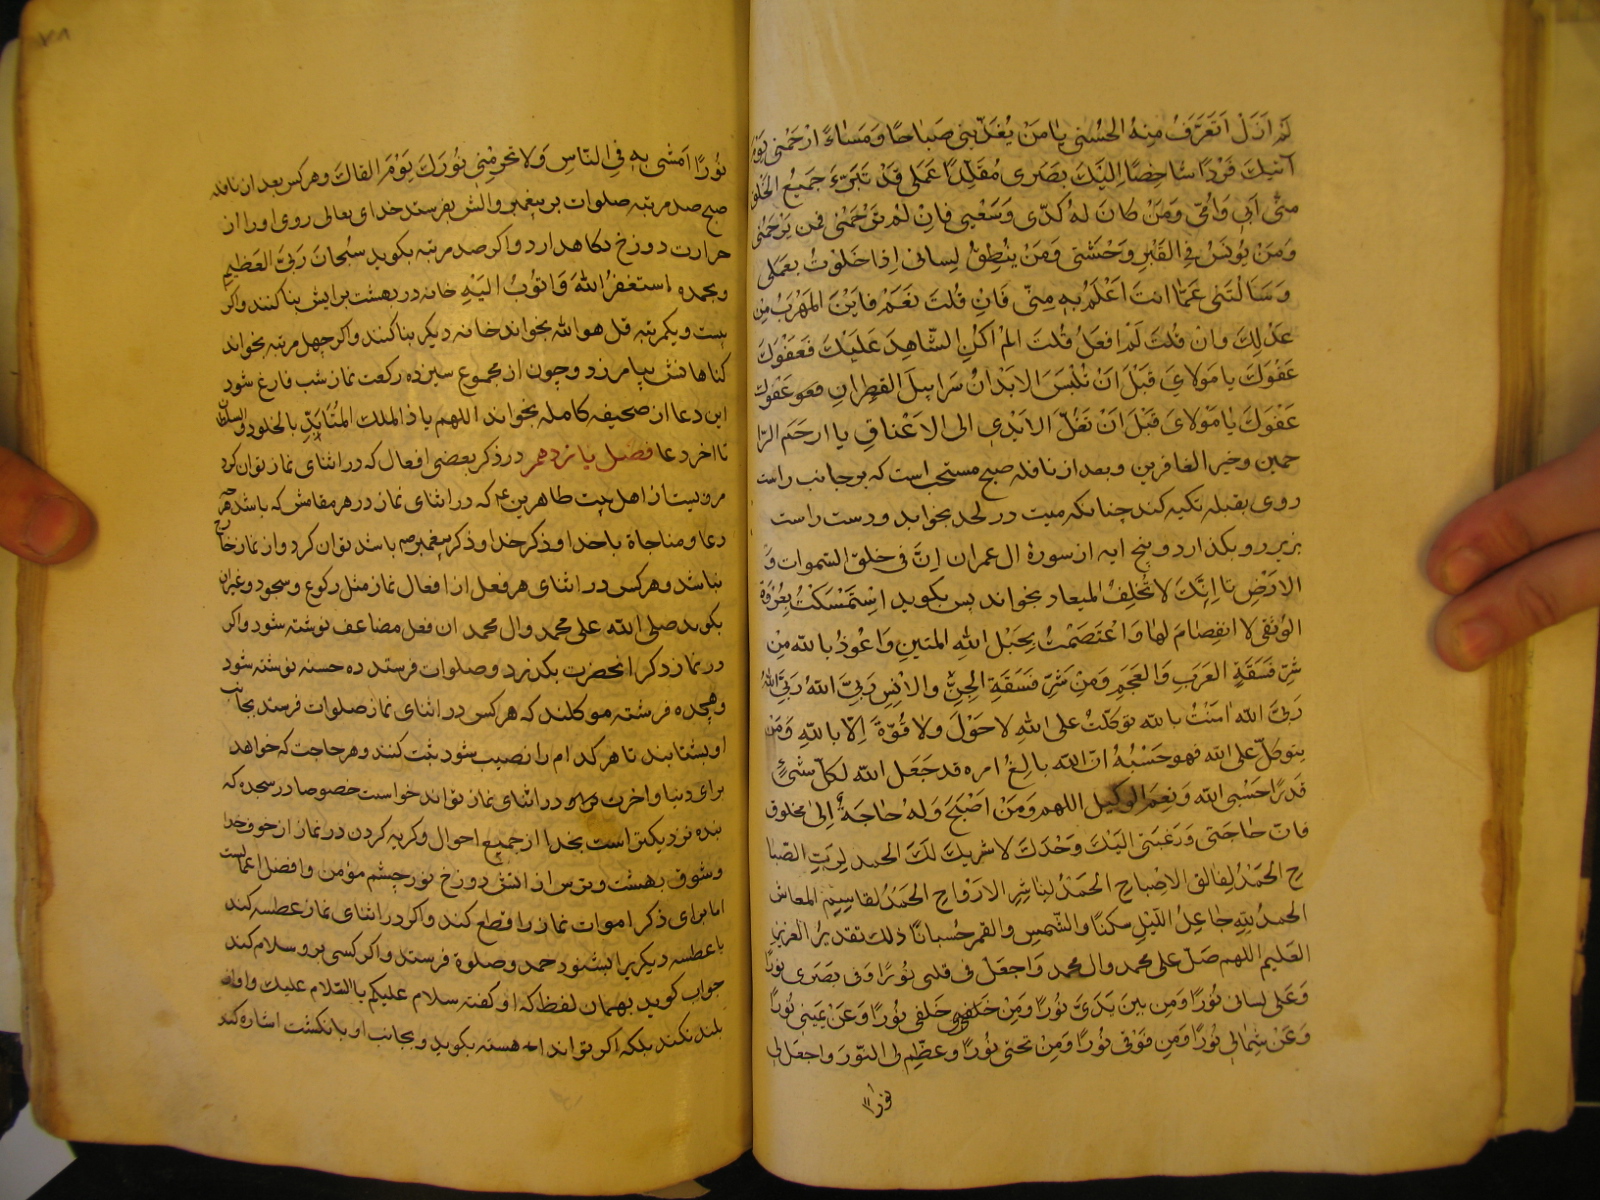 لَمْ اَزَلْ اَتَعَرَّفُ مِنْهُ الحُسْنى يٰا مَنْ يُغَذّينى صَباحًا وَمَسٰاءً ارْحَمْنى يَوْمَ
آتيكَ فَرْدًا شاخِصًا اِلَيْكَ بَصَرى مُقَلِّدًا عَمَلى قَدْ تَبَرَّءَ جَميعُ الخَلْقِ
مِنّى اَبى وَاُمّى وَمَنْ كانَ لَهُ كَدّى وَسَعْيى فَاِنْ لَمْ تَرْحَمْنى فَمن يَرْحَمُنى
وَمَنْ يُونِسُ فِى القَبْرِ وَحْشَتى وَمَنْ يُنْطِقُ لِسانى اِذا خَلَوْتُ بِعَمَلى
وَسَاَلْتَنى عَمّا انتَ اَعْلَمُ بِهِ مِنّى فَاِنْ قُلتُ نَعَمْ فَاَيْنَ المَهْرَبُ مِنْ
عَدْلِكَ وان قُلتُ لَمْ اَفعَلْ قُلْتَ المْ اكُنِ الشّاهِدَ عَلَيْكَ فَعَفْوَكَ
عَفْوَكَ يا مَولاىَ قَبْلَ اَنْ تُلْبَسَ الابْدانُ سَرابيلَ القَطِرانِ فعفوك عَفْوَكَ
عَفْوَكَ يٰا مَوْلاىَ قَبْلَ اَنْ تُغَلَّ الاَيْدى الى الاَعْناقِ يا ارحَمَ الرّا
حمين وخير الغافرين وبعد از نافله صبح مستحب است كه بر جانب راست
روى بقبله تكيه كند چنانكه ميت در لحد بخوابد ودست راست
بزير رو بگذارد و پنج ايه از سورهٔ ال عمران اِنَّ فى خلق السّموات وَ
الارَضِ تا اِنَّكَ لا تُخلِفُ الميعاد بخواند پس بگويد اسْتَمْسَكْتُ بِعُرْوَةِ
الوُثقى لا انفِصٰامَ لهٰا وَاعْتَصَمْتُ بِحَبْلِ اللّهِ المتينِ وَاَعُوذُ باللّه مِن
شَرِّ فَسَقَةِ العَرَبِ وَالعَجَمِ وَمِنْ شَرِّ فَسَقَةِ الجِنِّ والاِنْسِ رَبِّىَ اللّهُ رَبِّىَ اللّهُ
رَبِّىَ اللّه اٰمَنْتُ باللّه توكّلتُ على اللّهِ لا حَوْلَ ولا قُوّةَ اِلّا باللّهِ وَمَنْ
يتوكلْ على اللّه فهو حَسْبُهُ انّ اللّه بالِغُ امره قد جَعَلَ اللّه لكلّ شَىْءٍ
قَدرًا حَسْبى اللّه وَنِعمَ الوكيل اللهم وَمَنْ اَصْبَحَ وَلَهُ حٰاجَةٌ اِلىٰ مخلوق
فانّ حٰاجَتى وَرَغبَتى اليَكَ وَحْدَكَ لا شريكَ لَكَ الحمد لِرَبِّ الصّبا
حِ الحَمدُ لِفالق الاِصْباحِ الحَمْدُ لِناشِرِ الارَوْاحِ الحَمْدُ لقاسِمِ المعاش
الحمدُ للّهِ جٰاعِلُ اللّيْلِ سكنًا والشّمسِ والقمر حُسبانًا ذلك تقديرُ العزيز
العَليم اللهم صَلّ على محمد وال محمد وَاجعَلْ فى قلبى نُورًا وَفى بَصَرى نُورًا
وَعَلى لِسانى نُورًا وَمِن بينَ يَدَىَّ نُورًا وَمِنْ خَلفى نُورًا وَعَنْ يَمينى نُورًا
وَعَنْ شِمالى نُورًا وَمِن فَوْقى نُورًا وَمِن تحتى نُورًا وعَظِّم لى النّورَ واجعَل لى
نورا
٧٨
نُورًا اَمشى بِهِ فِى النّاسِ وَلا تحرِمْنى نُورَكَ يَوْمَ القاكَ وهركس بعد از نافله
صبح صد مرتبه صلوات بر پيغمبر والش بفرستد خداى تعالى روى اورا از
حرارت دوزخ نكاهدارد واكر صد مرتبه بكويد سُبْحانَ رَبِّىَ العَظيمِ
وبحمده استغفرُ اللّهَ وَاَتُوبُ الَيْهِ خانه در بهشت برايش بنا كنند واكر
بيست ويكمرتبه قل هو اللّه بخواند خانه ديكر بنا كنند واكر چهل مرتبه بخواند
كناهانش بيامرزد وچون از مجموع سيزده ركعت نماز شب فارغ شود
اين دعا از صحيفه كامله بخواند اللهم ياذا الملك المتُاَبِّدِ بالخلود والسلطان
تا اخر دعا فصل يازدهم در ذكر بعضى افعال كه در اثناى نماز توان كرد
مرويست از اهل بيت طاهرين ع كه در اثناى نماز در هر مقامش كه باشد هر
دعا ومناجاة با خدا وذكر خدا وذكر پيغمبر ص باشد توان كرد واز نماز خارج
نباشد وهركس در اثناى هر فعل از افعال نماز مثل ركوع وسجود وغيران
بكويد صلى اللّه على محمد وال محمد ان فعل مضاعف نوشته شود واكر
در نماز ذكر انحضرت بكذرد وصلوات فرستد ده حسنه نوشته شود
وهيجده فرشته موكلند كه هركس در اثناى نماز صلوات فرستد بجانب
او بشتابند تا هركدام را نصيب شود ثبت كنند وهر حاجت كه خواهد
براى دنيا واخرت در اثناى نماز تواند خواست خصوصا در سجده كه
بنده نزديكتر است بخدا از جميع احوال وكريه كردن در نماز از خوف خدا
وشوق بهشت وترس از اتش دوزخ نور چشم مؤمن وافضل اعمالست
اما براى ذكر اموات نماز را قطع كند واكر در اثناى نماز عطسه كند
يا عطسه ديكريرا بشنود حمد وصلوة فرستد واكر كسى برو سلام كند
جواب كويد بهمان لفظ كه او كفته سلام عليكم يا السّلام عليك واواز
بلند نكند بلكه اكر تواند اهسته بكويد وبجانب او بانكشت اشاره كند